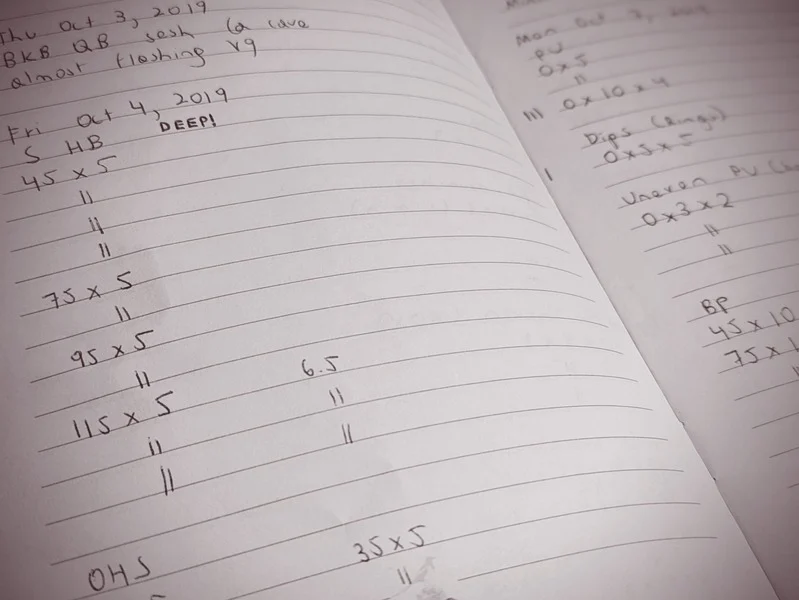 Thu Oct 3, 2019
BKB QB sesh @ cave
almost flashing V9
Fri Oct 4, 2019
S HB DEEP!
45 x 5
"
"
"
75 x 5
"
95 x 5
"
115 x 5 6.5
" "
" "
OHS 35 x 5
"
Mon Oct 7, 2019
PU
0 x 5
"
III 0 x 10 x 4
Dips (Rings)
I 0 x 5 x 5
Uneven PU
0 x 3 x 2
"
"
BP
45 x 10
75 x
"